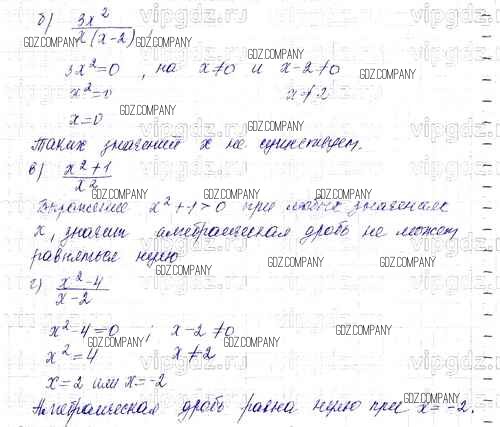 б) 3x²
x(x-2) ;
3x²=0 , но x≠0 и x-2≠0
x²=0 x≠2
x=0
Таких значений x не существует.
в) x²+1
x²
Выражение x²+1>0 при любых значениях
x, значит алгебраическая дробь не может
равняться нулю
г) x²-4
x-2
x²-4=0 ; x-2≠0
x²=4 x≠2
x=2 или x=-2
Алгебраическая дробь равна нулю при x=-2.
GDZ.COMPANY
vipgdz.ru